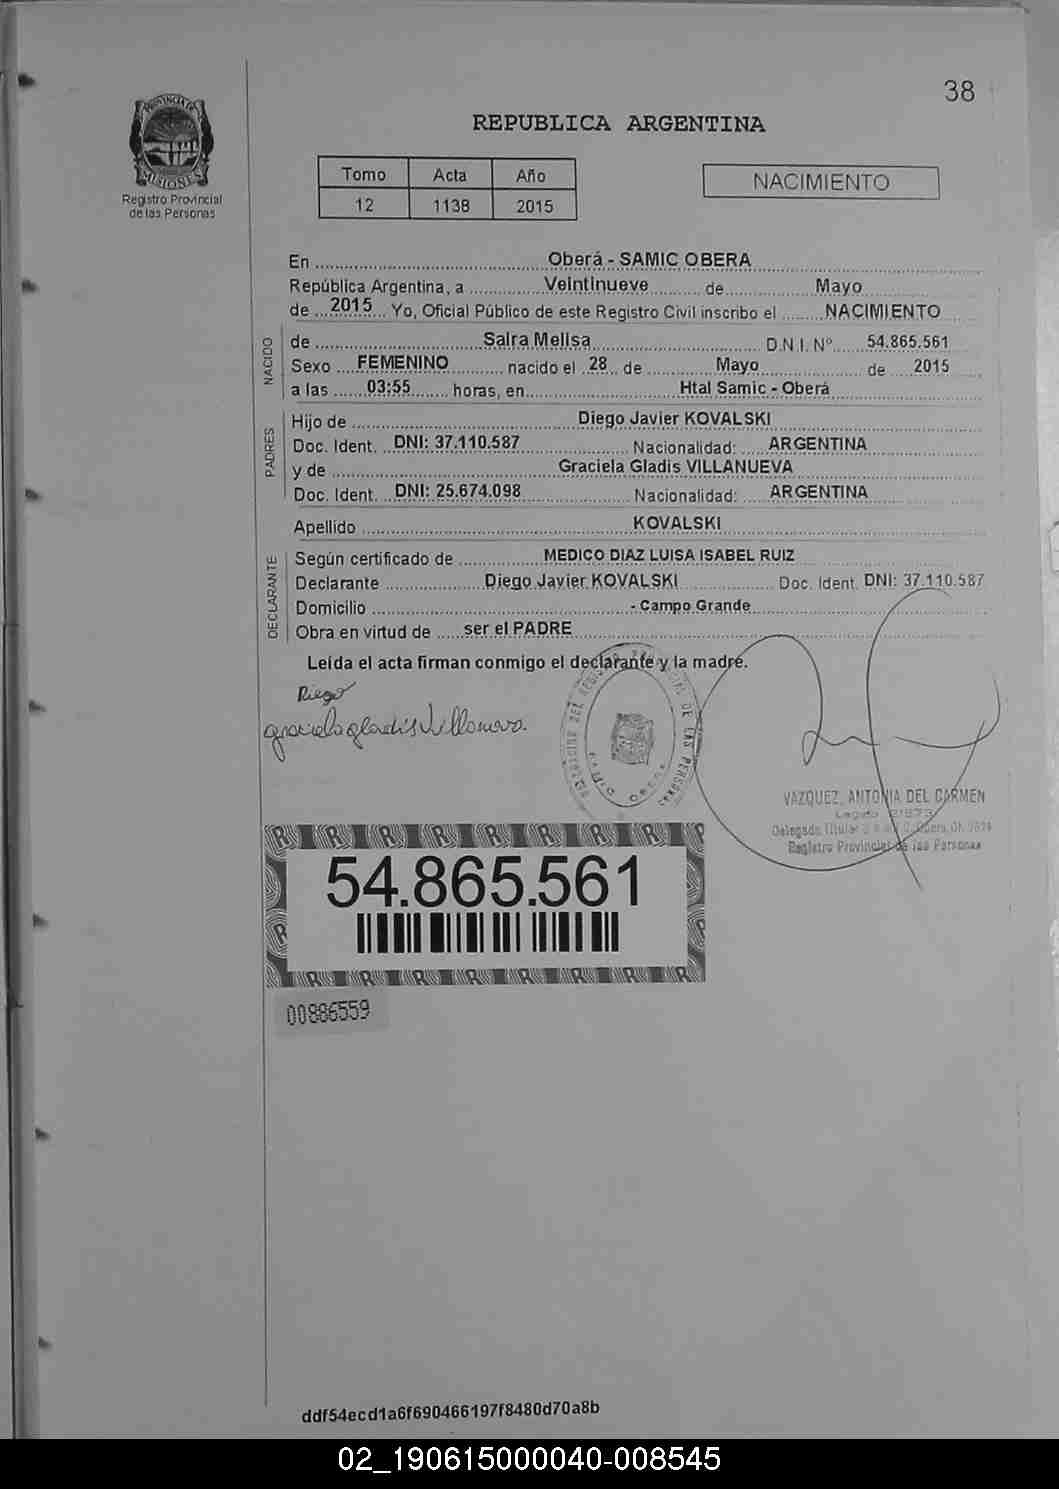 38
PROVINCIA DE
MISIONES
Registro Provincial
de las Personas
REPUBLICA ARGENTINA
Tomo Acta Año
12 1138 2015
NACIMIENTO
En Oberá - SAMIC OBERA
República Argentina, a Veintinueve de Mayo
de 2015 Yo, Oficial Público de este Registro Civil inscribo el NACIMIENTO
NACIDO
de Saira Melisa D.N.I. Nº 54.865.561
Sexo FEMENINO nacido el 28 de Mayo de 2015
a las 03:55 horas, en Htal Samic - Oberá
PADRES
Hijo de Diego Javier KOVALSKI
Doc. Ident. DNI: 37.110.587 Nacionalidad: ARGENTINA
y de Graciela Gladis VILLANUEVA
Doc. Ident. DNI: 25.674.098 Nacionalidad: ARGENTINA
Apellido KOVALSKI
DECLARANTE
Según certificado de MEDICO DIAZ LUISA ISABEL RUIZ
Declarante Diego Javier KOVALSKI Doc. Ident. DNI: 37.110.587
Domicilio - Campo Grande
Obra en virtud de ser el PADRE
Leída el acta firman conmigo el declarante y la madre.
Diego
graciela gladis Villanueva.
DEL REGISTRO PROVINCIAL DE LAS PERSONAS
VAZQUEZ, ANTONIA DEL CARMEN
Legajo
Delegado Titular
Registro Provincial de las Personas
54.865.561
00886559
ddf54ecd1a6f690466197f8480d70a8b
02_190615000040-008545